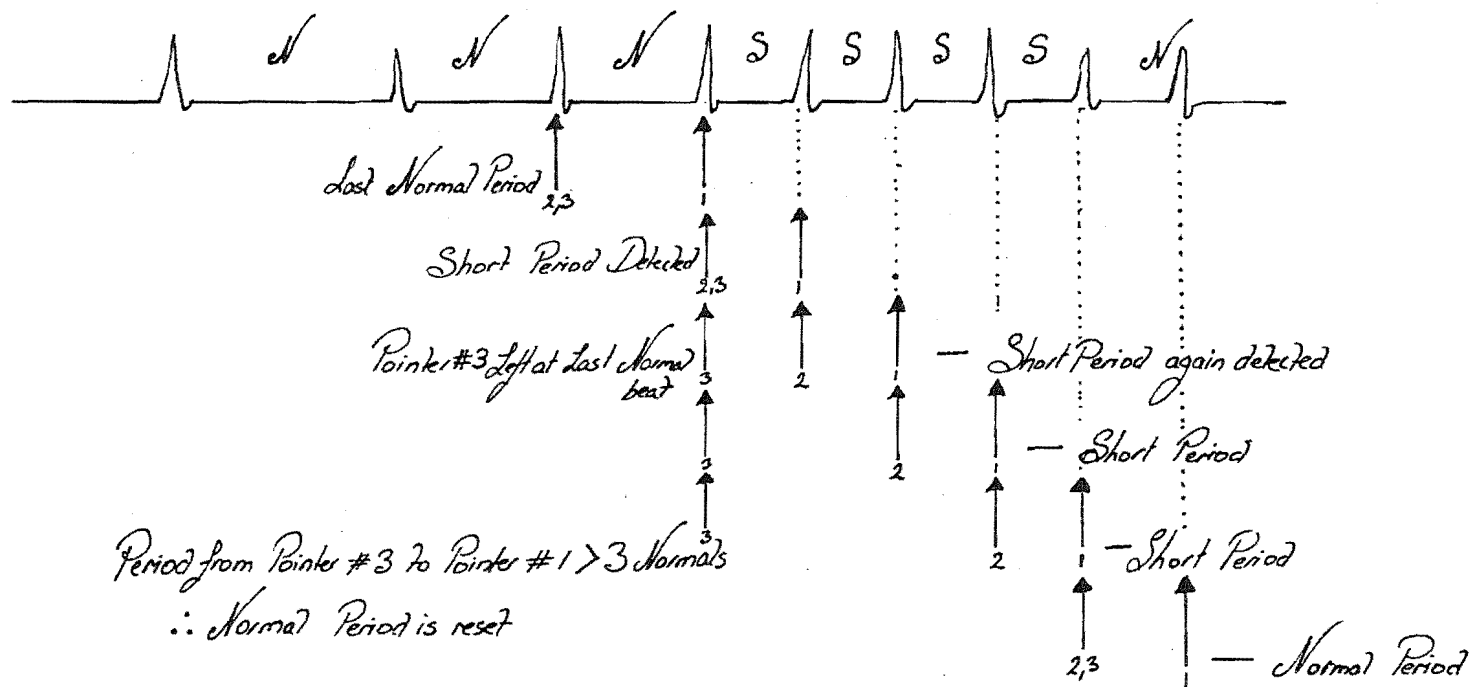 N N N S S S S N
Last Normal Period
2,3
1
Short Period Detected
2,3
1
Pointer #3 Left at Last Normal
beat
3
2
1
— Short Period again detected
3
2
1
— Short Period
3
2
1
— Short Period
Period from Pointer #3 to Pointer #1 > 3 Normals
∴ Normal Period is reset
2,3
1
— Normal Period